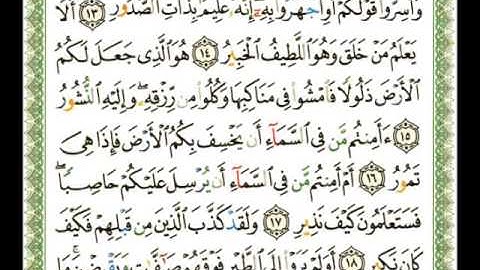 وَأَسِرُّوا۟ قَوْلَكُمْ أَوِ ٱجْهَرُوا۟ بِهِۦٓ إِنَّهُۥ عَلِيمٌۢ بِذَاتِ ٱلصُّدُورِ ١٣ أَلَا
يَعْلَمُ مَنْ خَلَقَ وَهُوَ ٱللَّطِيفُ ٱلْخَبِيرُ ١٤ هُوَ ٱلَّذِى جَعَلَ لَكُمُ
ٱلْأَرْضَ ذَلُولًا فَٱمْشُوا۟ فِى مَنَاكِبِهَا وَكُلُوا۟ مِن رِّزْقِهِۦ وَإِلَيْهِ ٱلنُّشُورُ
١٥ ءَأَمِنتُم مَّن فِى ٱلسَّمَآءِ أَن يَخْسِفَ بِكُمُ ٱلْأَرْضَ فَإِذَا هِىَ
تَمُورُ ١٦ أَمْ أَمِنتُم مَّن فِى ٱلسَّمَآءِ أَن يُرْسِلَ عَلَيْكُمْ حَاصِبًا
فَسَتَعْلَمُونَ كَيْفَ نَذِيرِ ١٧ وَلَقَدْ كَذَّبَ ٱلَّذِينَ مِن قَبْلِهِمْ فَكَيْفَ
كَانَ نَكِيرِ ١٨ أَوَلَمْ يَرَوْا۟ إِلَى ٱلطَّيْرِ فَوْقَهُمْ صَٰٓفَّٰتٍ وَيَقْبِضْنَ مَا